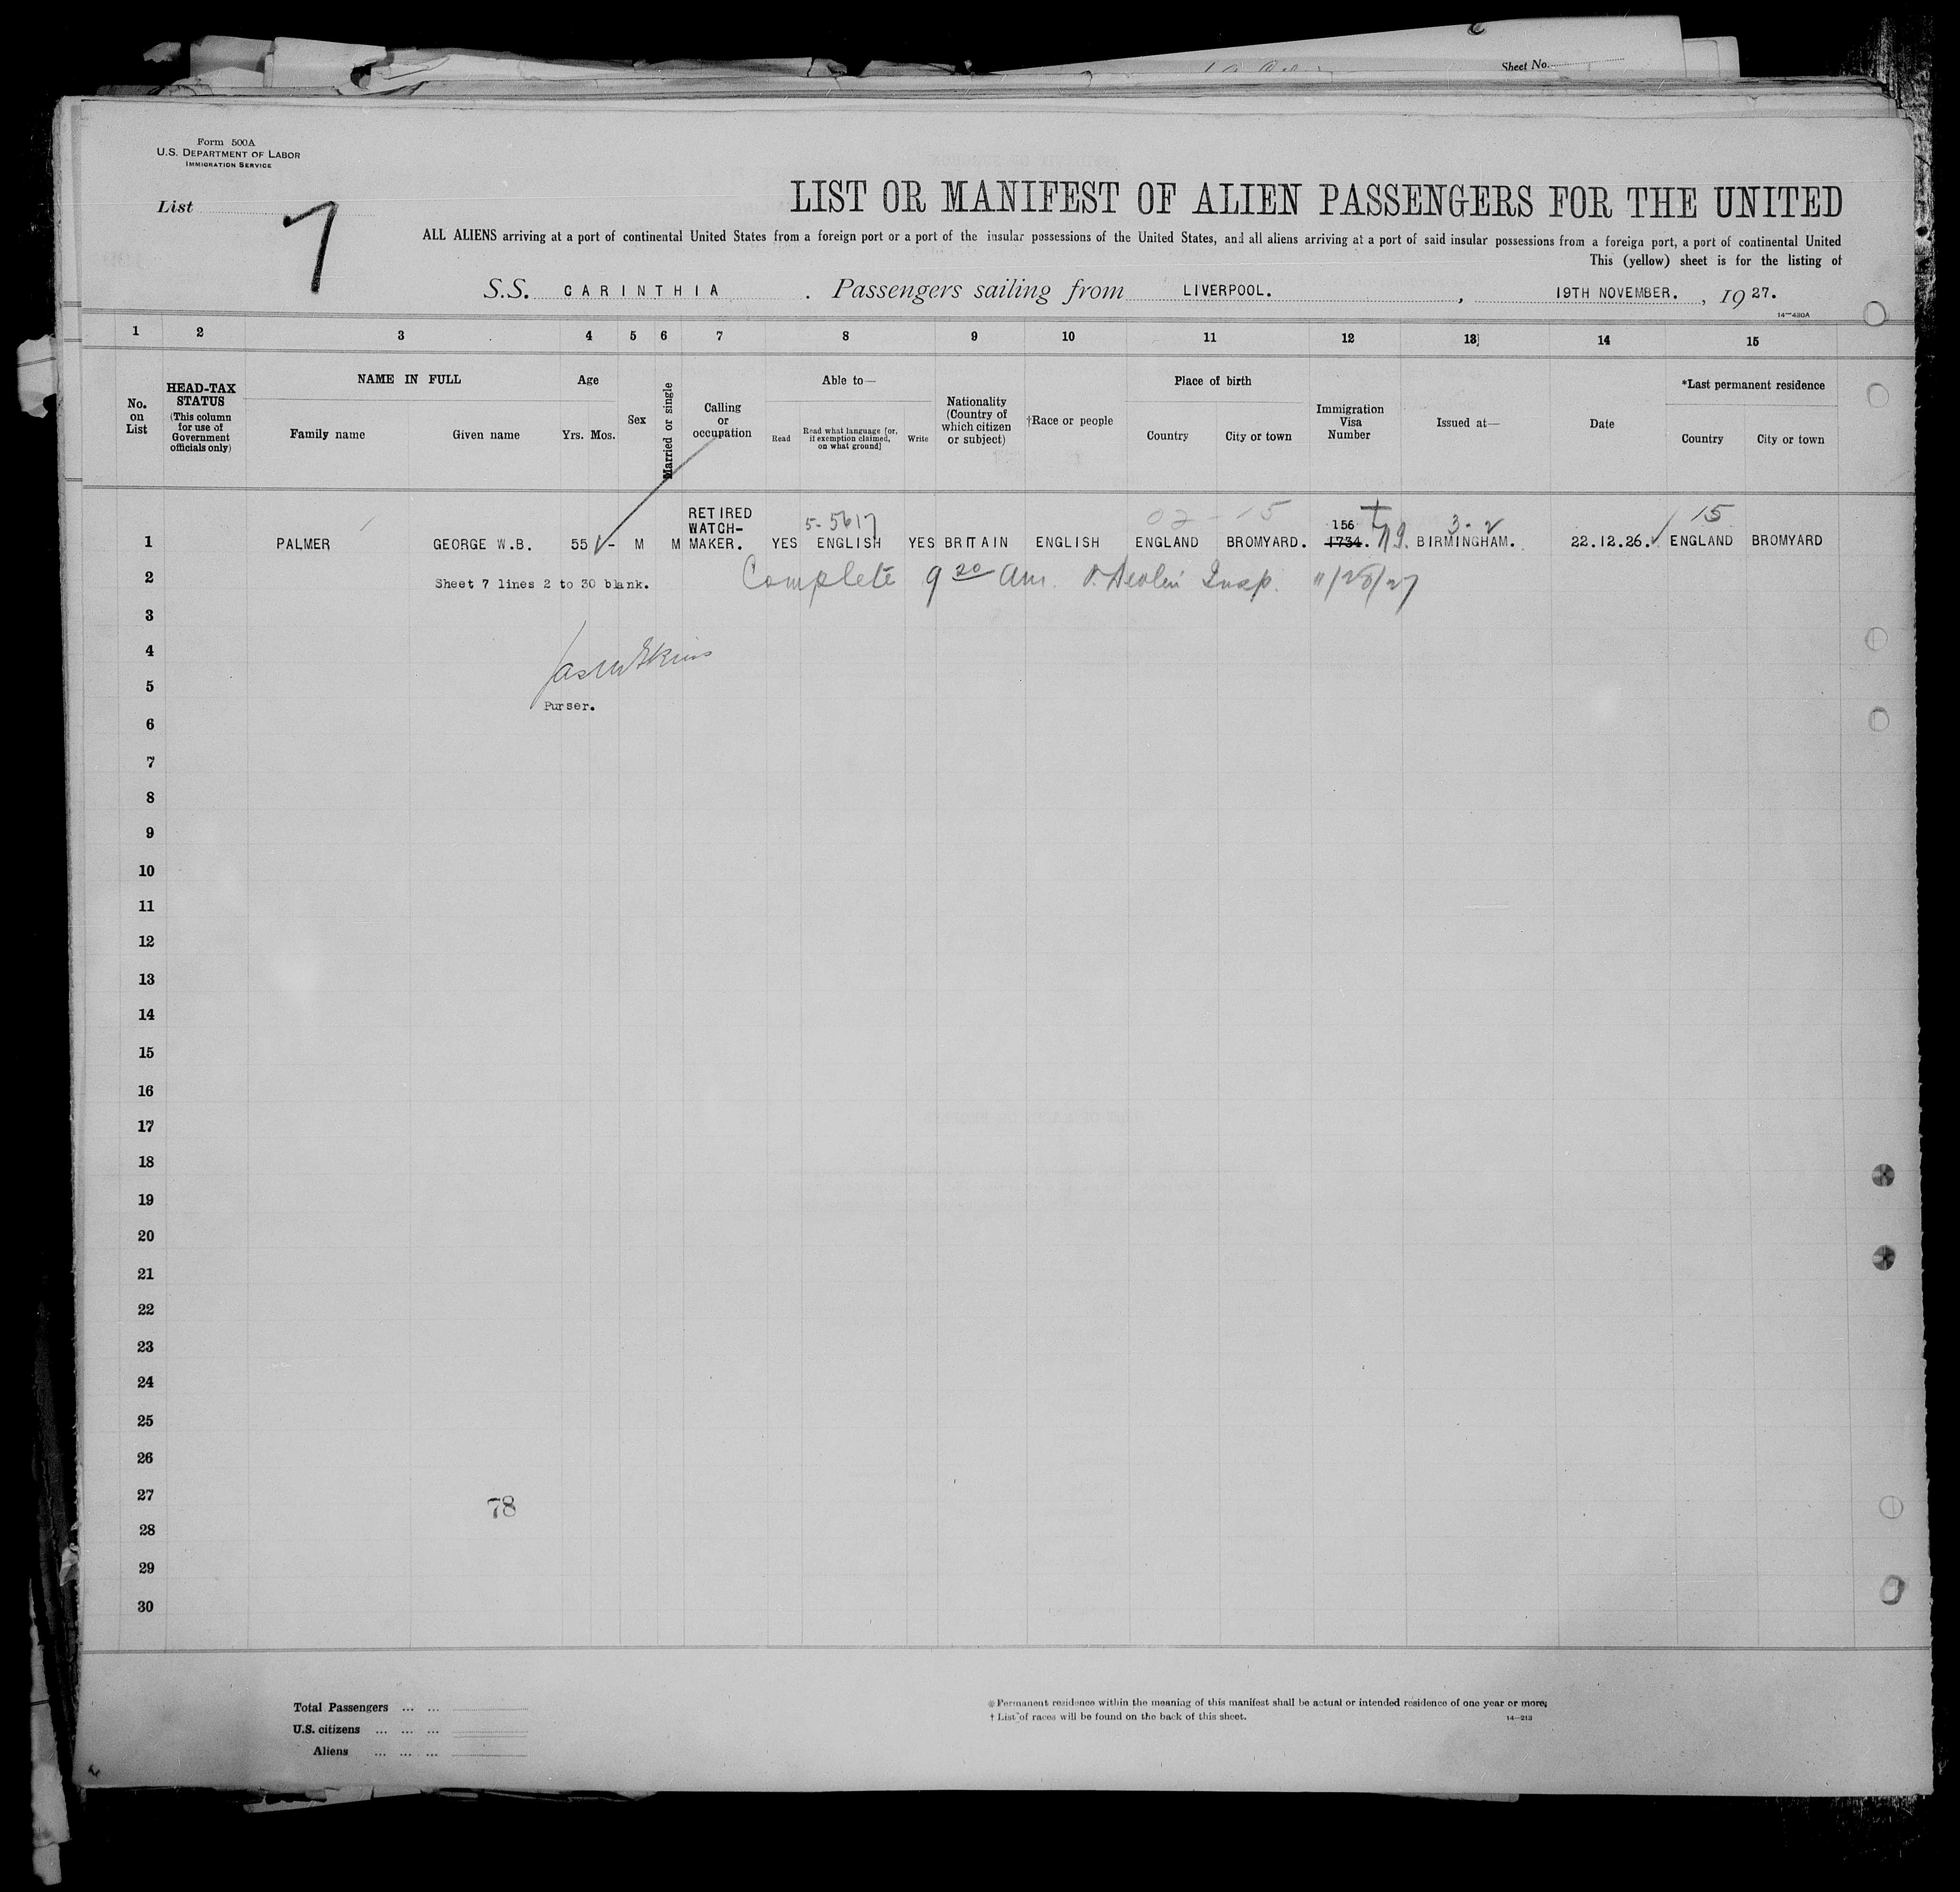 Sheet No.
Form 500A
U.S. DEPARTMENT OF LABOR
IMMIGRATION SERVICE
List 7
LIST OR MANIFEST OF ALIEN PASSENGERS FOR THE UNITED
ALL ALIENS arriving at a port of continental United States from a foreign port or a port of the insular possessions of the United States, and all aliens arriving at a port of said insular possessions from a foreign port, a port of continental United
This (yellow) sheet is for the listing of
S.S. CARINTHIA. Passengers sailing from LIVERPOOL. , 19TH NOVEMBER. , 19 27.
14—430A
1 2 3 4 5 6 7 8 9 10 11 12 13 14 15
No. on List
HEAD-TAX STATUS
(This column for use of Government officials only)
NAME IN FULL
Family name
Given name
Age
Yrs. Mos.
Sex
Married or single
Calling or occupation
Able to—
Read
Read what language [or, if exemption claimed, on what ground]
Write
Nationality (Country of which citizen or subject)
†Race or people
Place of birth
Country
City or town
Immigration Visa Number
Issued at—
Date
*Last permanent residence
Country
City or town
5-5617
02 - 15
3-2
15
1 PALMER GEORGE W.B. 55 - M M RETIRED WATCH-MAKER. YES ENGLISH YES BRITAIN ENGLISH ENGLAND BROMYARD. 156 1734. BIRMINGHAM. 22.12.26. ENGLAND BROMYARD
2 Sheet 7 lines 2 to 30 blank. Complete 9 30 Am. Insp. 11/28/27
3
4
5
Purser.
6
7
8
9
10
11
12
13
14
15
16
17
18
19
20
21
22
23
24
25
26
27
78
28
29
30
Total Passengers ... ...
U.S. citizens ... ... ...
Aliens ... ... ...
*Permanent residence within the meaning of this manifest shall be actual or intended residence of one year or more.
† List of races will be found on the back of this sheet.
14—213